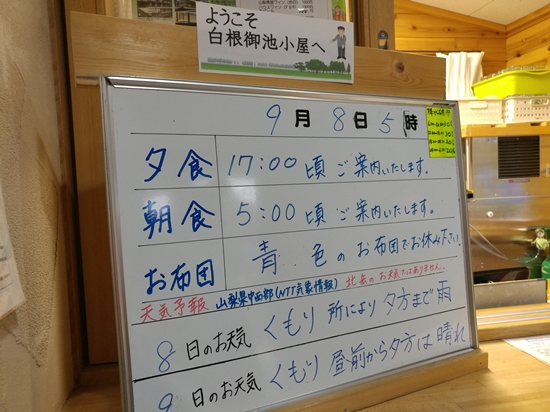 ようこそ
白根御池小屋へ
9月8日5時
夕食 17:00頃ご案内いたします。
朝食 5:00頃ご案内いたします。
お布団 青色のお布団でお休み下さい。
天気予報 山梨県中西部(NTT気象情報) 北岳のお天気ではありません。
8日のお天気 くもり 所により 夕方まで雨
9日のお天気 くもり 昼前から夕方は晴れ